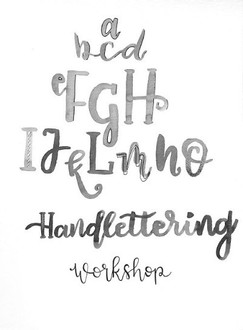 a
bcd
eFGH
IJKLmno
Handlettering
workshop